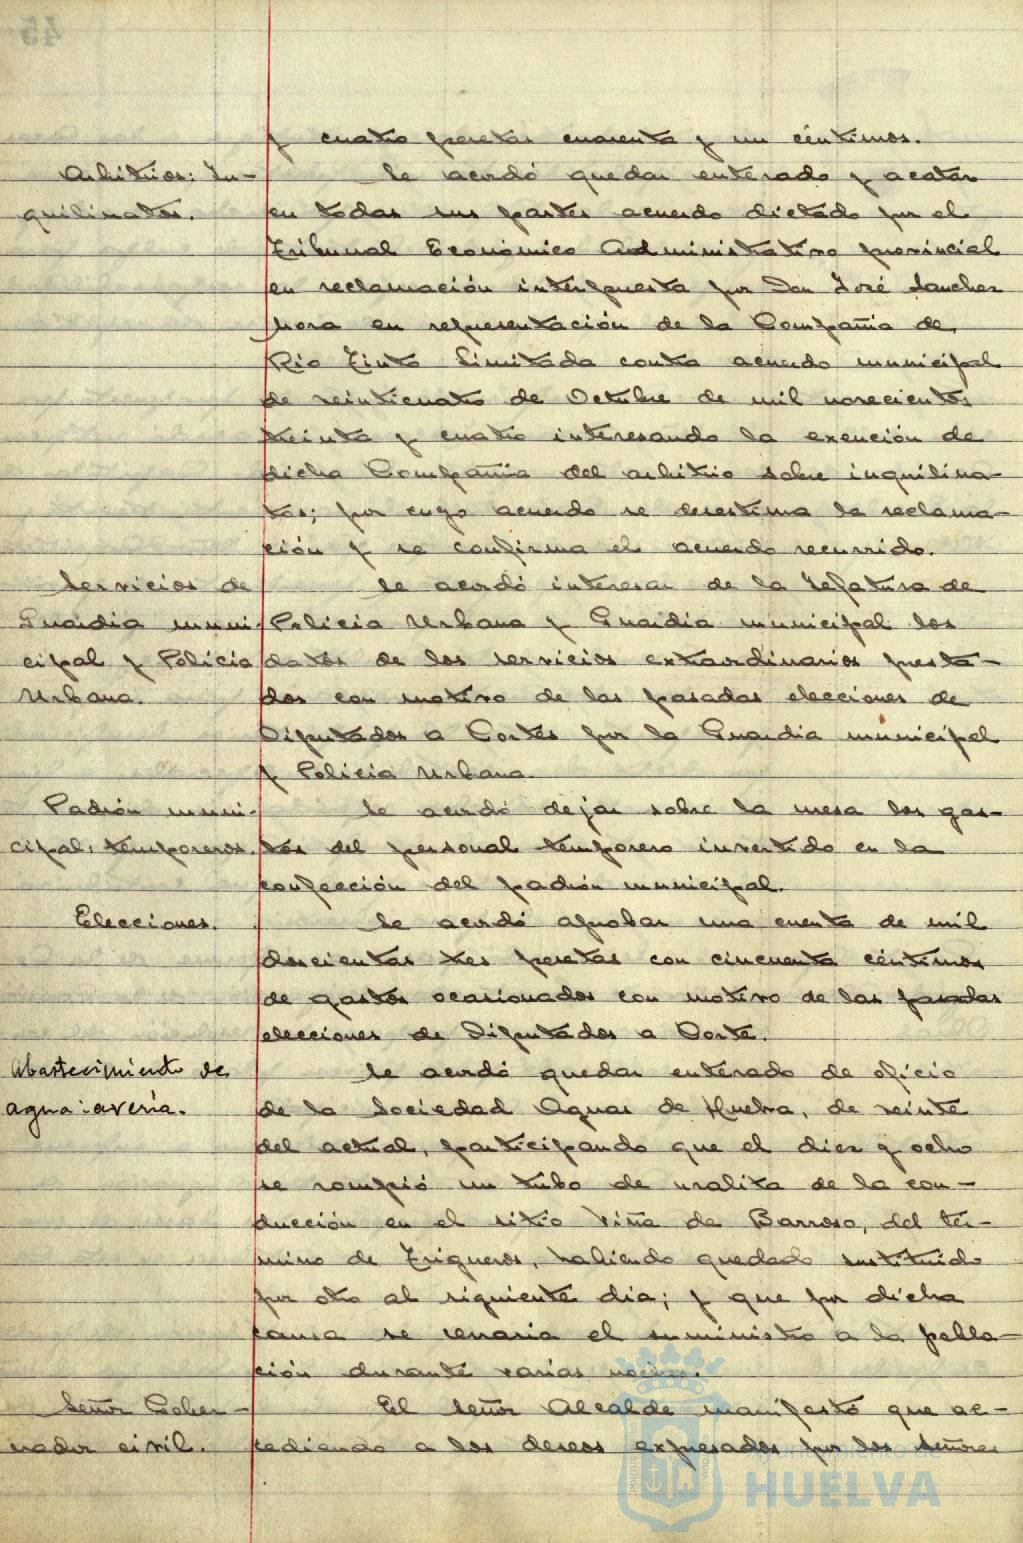 y cuatro pesetas cuarenta y un céntimos.
Arbitrios: In-
quilinatos.
Se acordó quedar enterado y acatar
en todas sus partes acuerdo dictado por el
Tribunal Económico Administrativo provincial
en reclamación interpuesta por Don José Sanchez
Mora en representación de la Compañia de
Rio Tinto Limitada contra acuerdo municipal
de veinticuatro de Octubre de mil novecientos
treinta y cuatro interesando la exención de
dicha Compañia del arbitrio sobre inquilina-
tos; por cuyo acuerdo se desestima la reclama-
ción y se confirma el acuerdo recurrido.
Servicios de
Guardia muni-
cipal y Policia
Urbana.
Se acordó interesar de la Jefatura de
Policia Urbana y Guardia municipal los
datos de los servicios extraordinarios presta-
dos con motivo de las pasadas elecciones de
Diputados a Cortes por la Guardia municipal
y Policia Urbana.
Padrón muni-
cipal: temporeros.
Se acordó dejar sobre la mesa los gas-
tos del personal temporero invertido en la
confección del padrón municipal.
Elecciones.
Se acordó aprobar una cuenta de mil
doscientas tres pesetas con cincuenta céntimos
de gastos ocasionados con motivo de las pasadas
elecciones de Diputados a Corte.
Abastecimiento de
agua: averia.
Se acordó quedar enterado de oficio
de la Sociedad Aguas de Huelva, de veinte
del actual, participando que el diez y ocho
se rompió un tubo de uralita de la con-
ducción en el sitio Viña de Barroso, del tér-
mino de Trigueros, habiendo quedado sustituido
por otro al siguiente dia; y que por dicha
causa se cerraria el suministro a la pobla-
ción durante varias noches.
Señor Gober-
nador civil.
El señor Alcalde manifestó que ac-
cediendo a los deseos expresados por los Señores
Ayuntamiento de
HUELVA
45